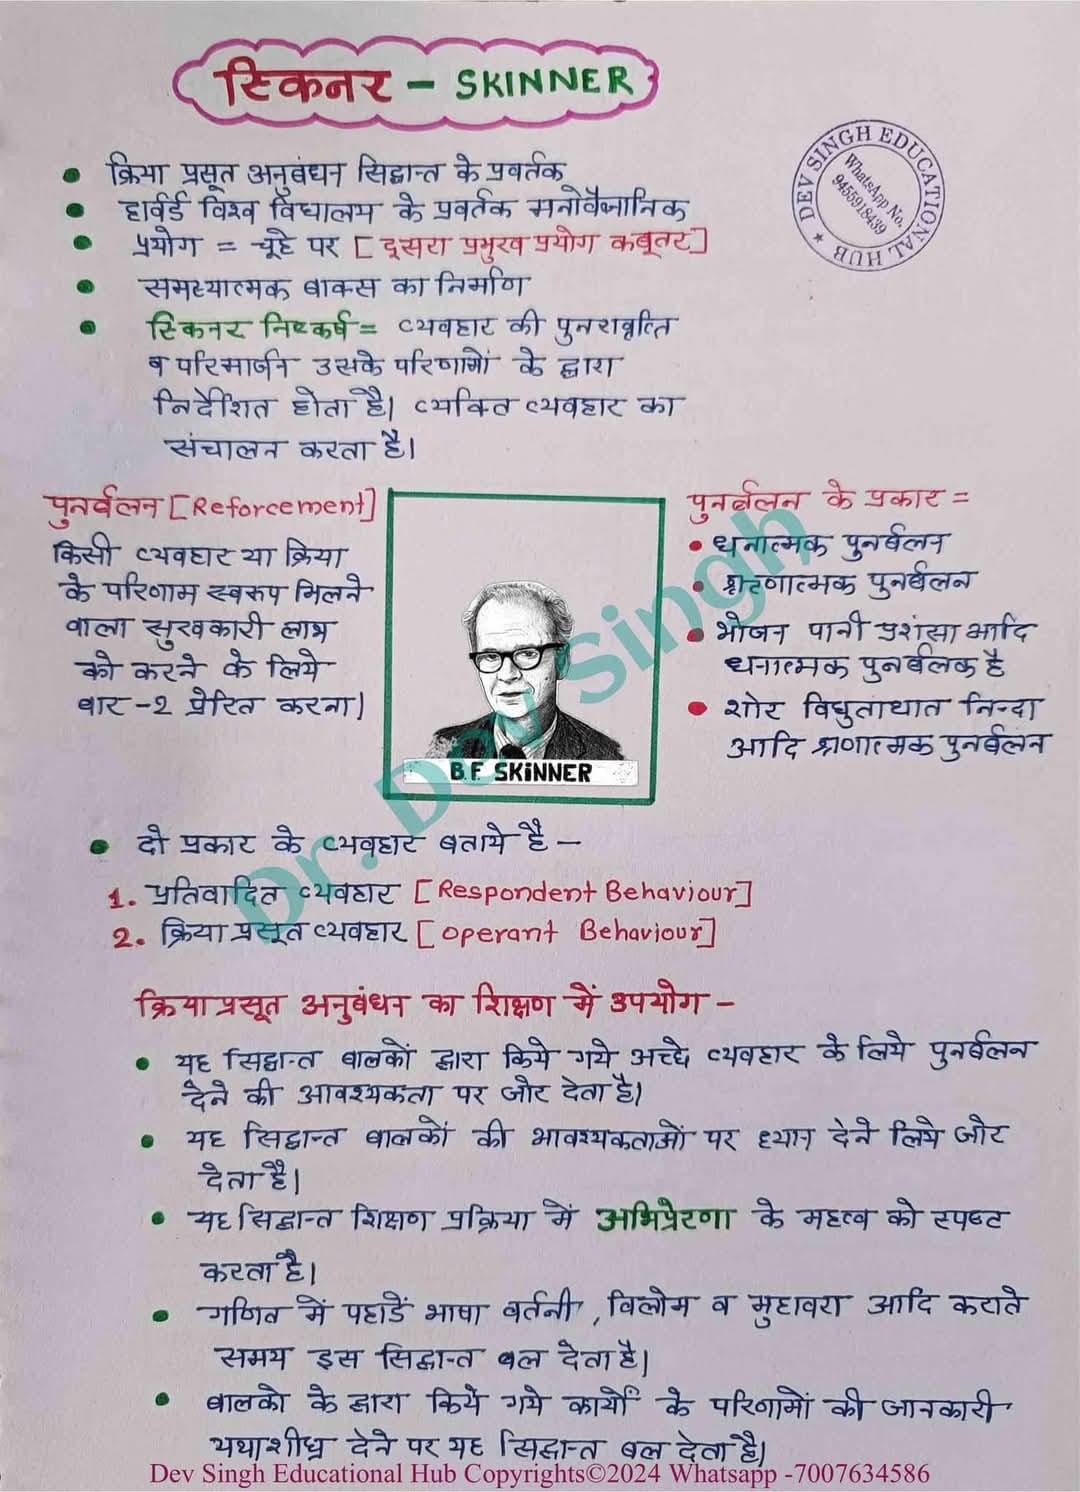 स्किनर - SKINNER
DEV SINGH EDUCATIONAL HUB
WhatsApp No.
9455918439
क्रिया प्रसूत अनुबंधन सिद्धान्त के प्रवर्तक
हार्वर्ड विश्व विद्यालय के प्रवर्तक मनोवैज्ञानिक
प्रयोग = चूहे पर [दूसरा प्रमुख प्रयोग कबूतर]
समस्यात्मक बाक्स का निर्माण
स्किनर निष्कर्ष = व्यवहार की पुनरावृत्ति
व परिमार्जन उसके परिणामों के द्वारा
निर्देशित होता है। व्यक्ति व्यवहार का
संचालन करता है।
पुनर्वलन [Reforcement]
किसी व्यवहार या क्रिया
के परिणाम स्वरूप मिलने
वाला सुखकारी लाभ
को करने के लिये
बार -2 प्रेरित करना।
B.F. SKINNER
पुनर्बलन के प्रकार =
धनात्मक पुनर्वलन
ऋणात्मक पुनर्वलन
भोजन पानी प्रशंसा आदि
धनात्मक पुनर्वलक है
शोर विधुताघात निन्दा
आदि ऋणात्मक पुनर्बलन
Dr. Dev Singh
दो प्रकार के व्यवहार बताये है -
1. प्रतिवादित व्यवहार [Respondent Behaviour]
2. क्रिया प्रसूत व्यवहार [operant Behaviour]
क्रिया प्रसूत अनुबंधन का शिक्षण में उपयोग -
यह सिद्धान्त बालकों द्वारा किये गये अच्छे व्यवहार के लिये पुनर्बलन
देने की आवश्यकता पर जोर देता है।
यह सिद्धान्त बालकों की आवश्यकताओं पर ध्यान देने लिये जोर
देता है।
यह सिद्धान्त शिक्षण प्रक्रिया में अभिप्रेरणा के महत्व को स्पष्ट
करता है।
गणित में पहाडें भाषा वर्तनी, विलोम व मुहावरा आदि कराते
समय इस सिद्धान्त बल देता है।
बालको के द्वारा किये गये कार्यों के परिणामों की जानकारी
यथाशीघ्र देने पर यह सिद्धान्त बल देता है।
Dev Singh Educational Hub Copyrights©2024 Whatsapp -7007634586